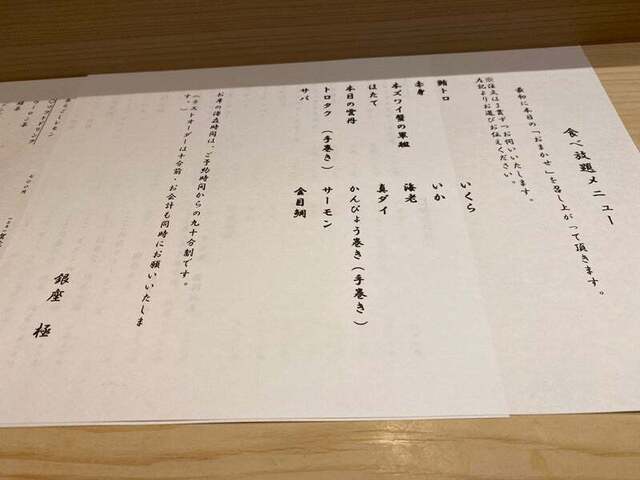 食べ放題メニュー
最初に本日の「おまかせ」を召し上がって頂きます。
※注文は3貫ずつお伺いいたします。
左記よりお選びお伝えください。
鮪トロ いくら
赤身 いか
本ズワイ蟹の軍艦 海老
ほたて 真ダイ
本日の雲丹 かんぴょう巻き(手巻き)
トロタク(手巻き) サーモン
サバ 金目鯛
お席の滞在時間は、ご予約時間からの九十分制です。
(ラストオーダーは十分前・お会計も同時にお願いいたしま
す。
銀座 極